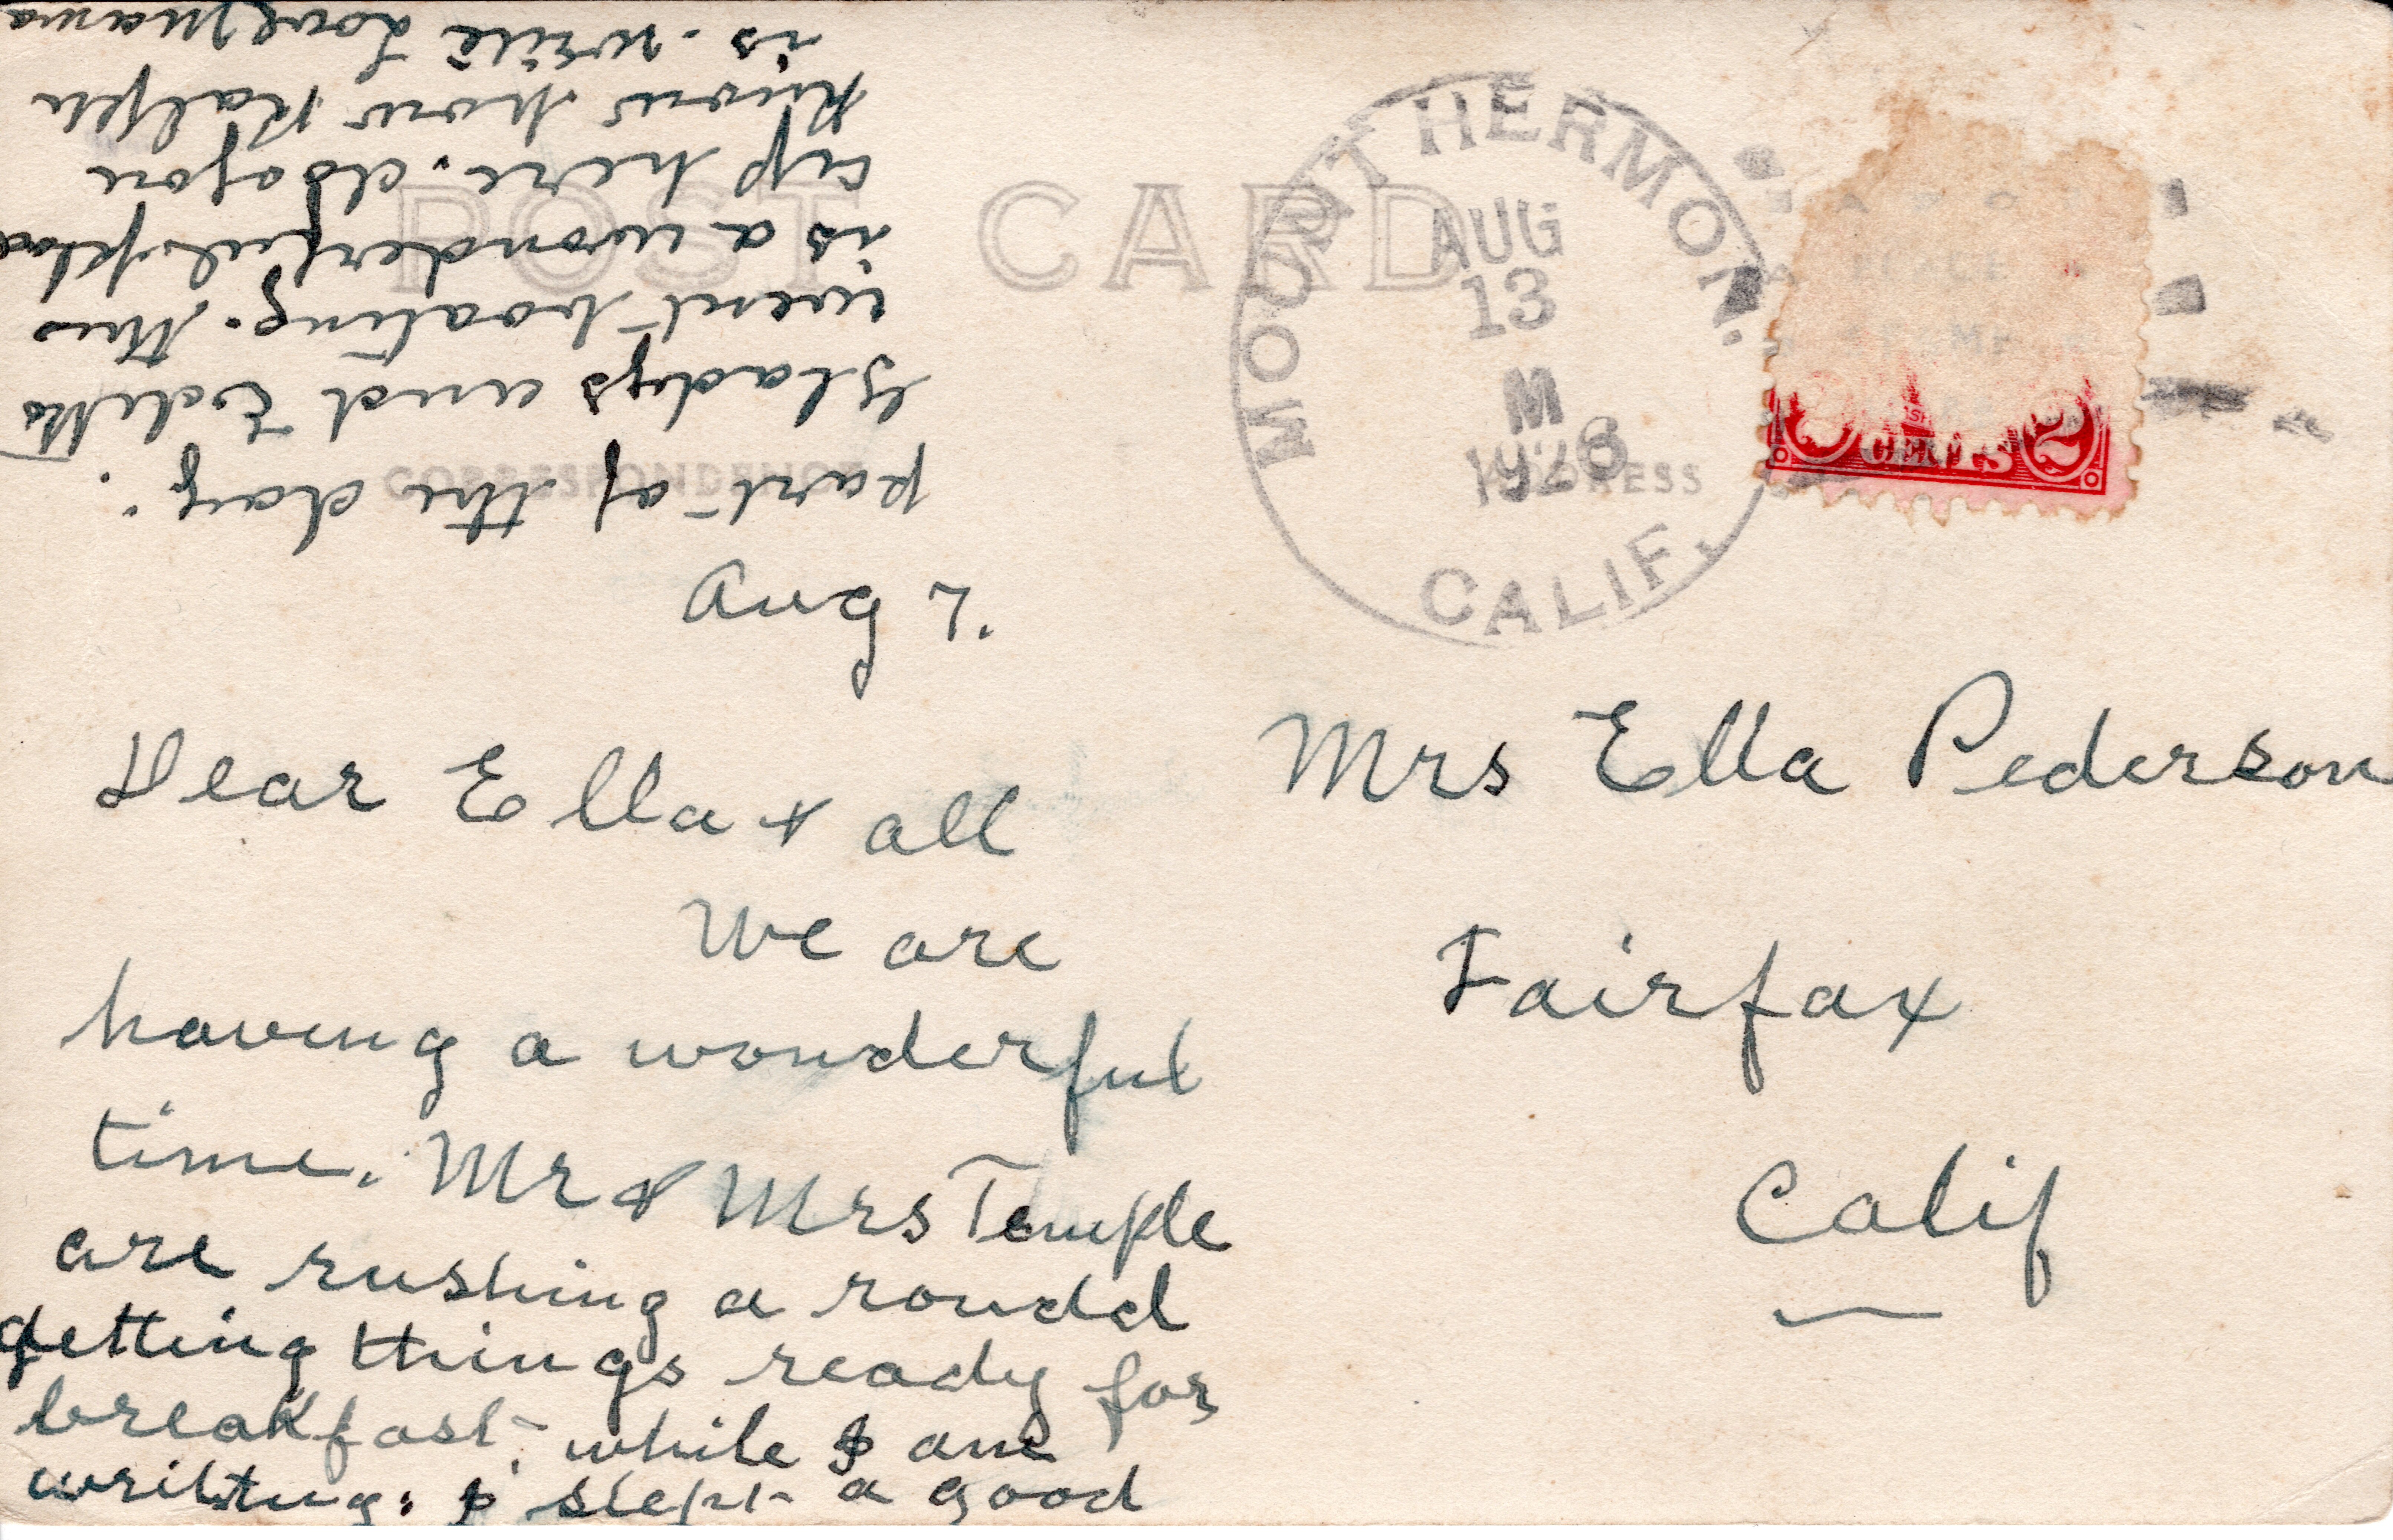 POST CARD
CORRESPONDENCE
ADDRESS
MOUNT HERMON.
AUG
13
M
CALIF.
CENTS 2
Aug 7.
Dear Ella & all
We are
having a wonderful
time. Mr & Mrs Temple
are rushing a round
getting things ready for
breakfast, while I am
writing. I slept a good
part of the day.
Gladys and Edith
went boating. This
is a wonderful place
up here.
know how Ralph
is. write Love Mama
Mrs Ella Pederson
Fairfax
Calif